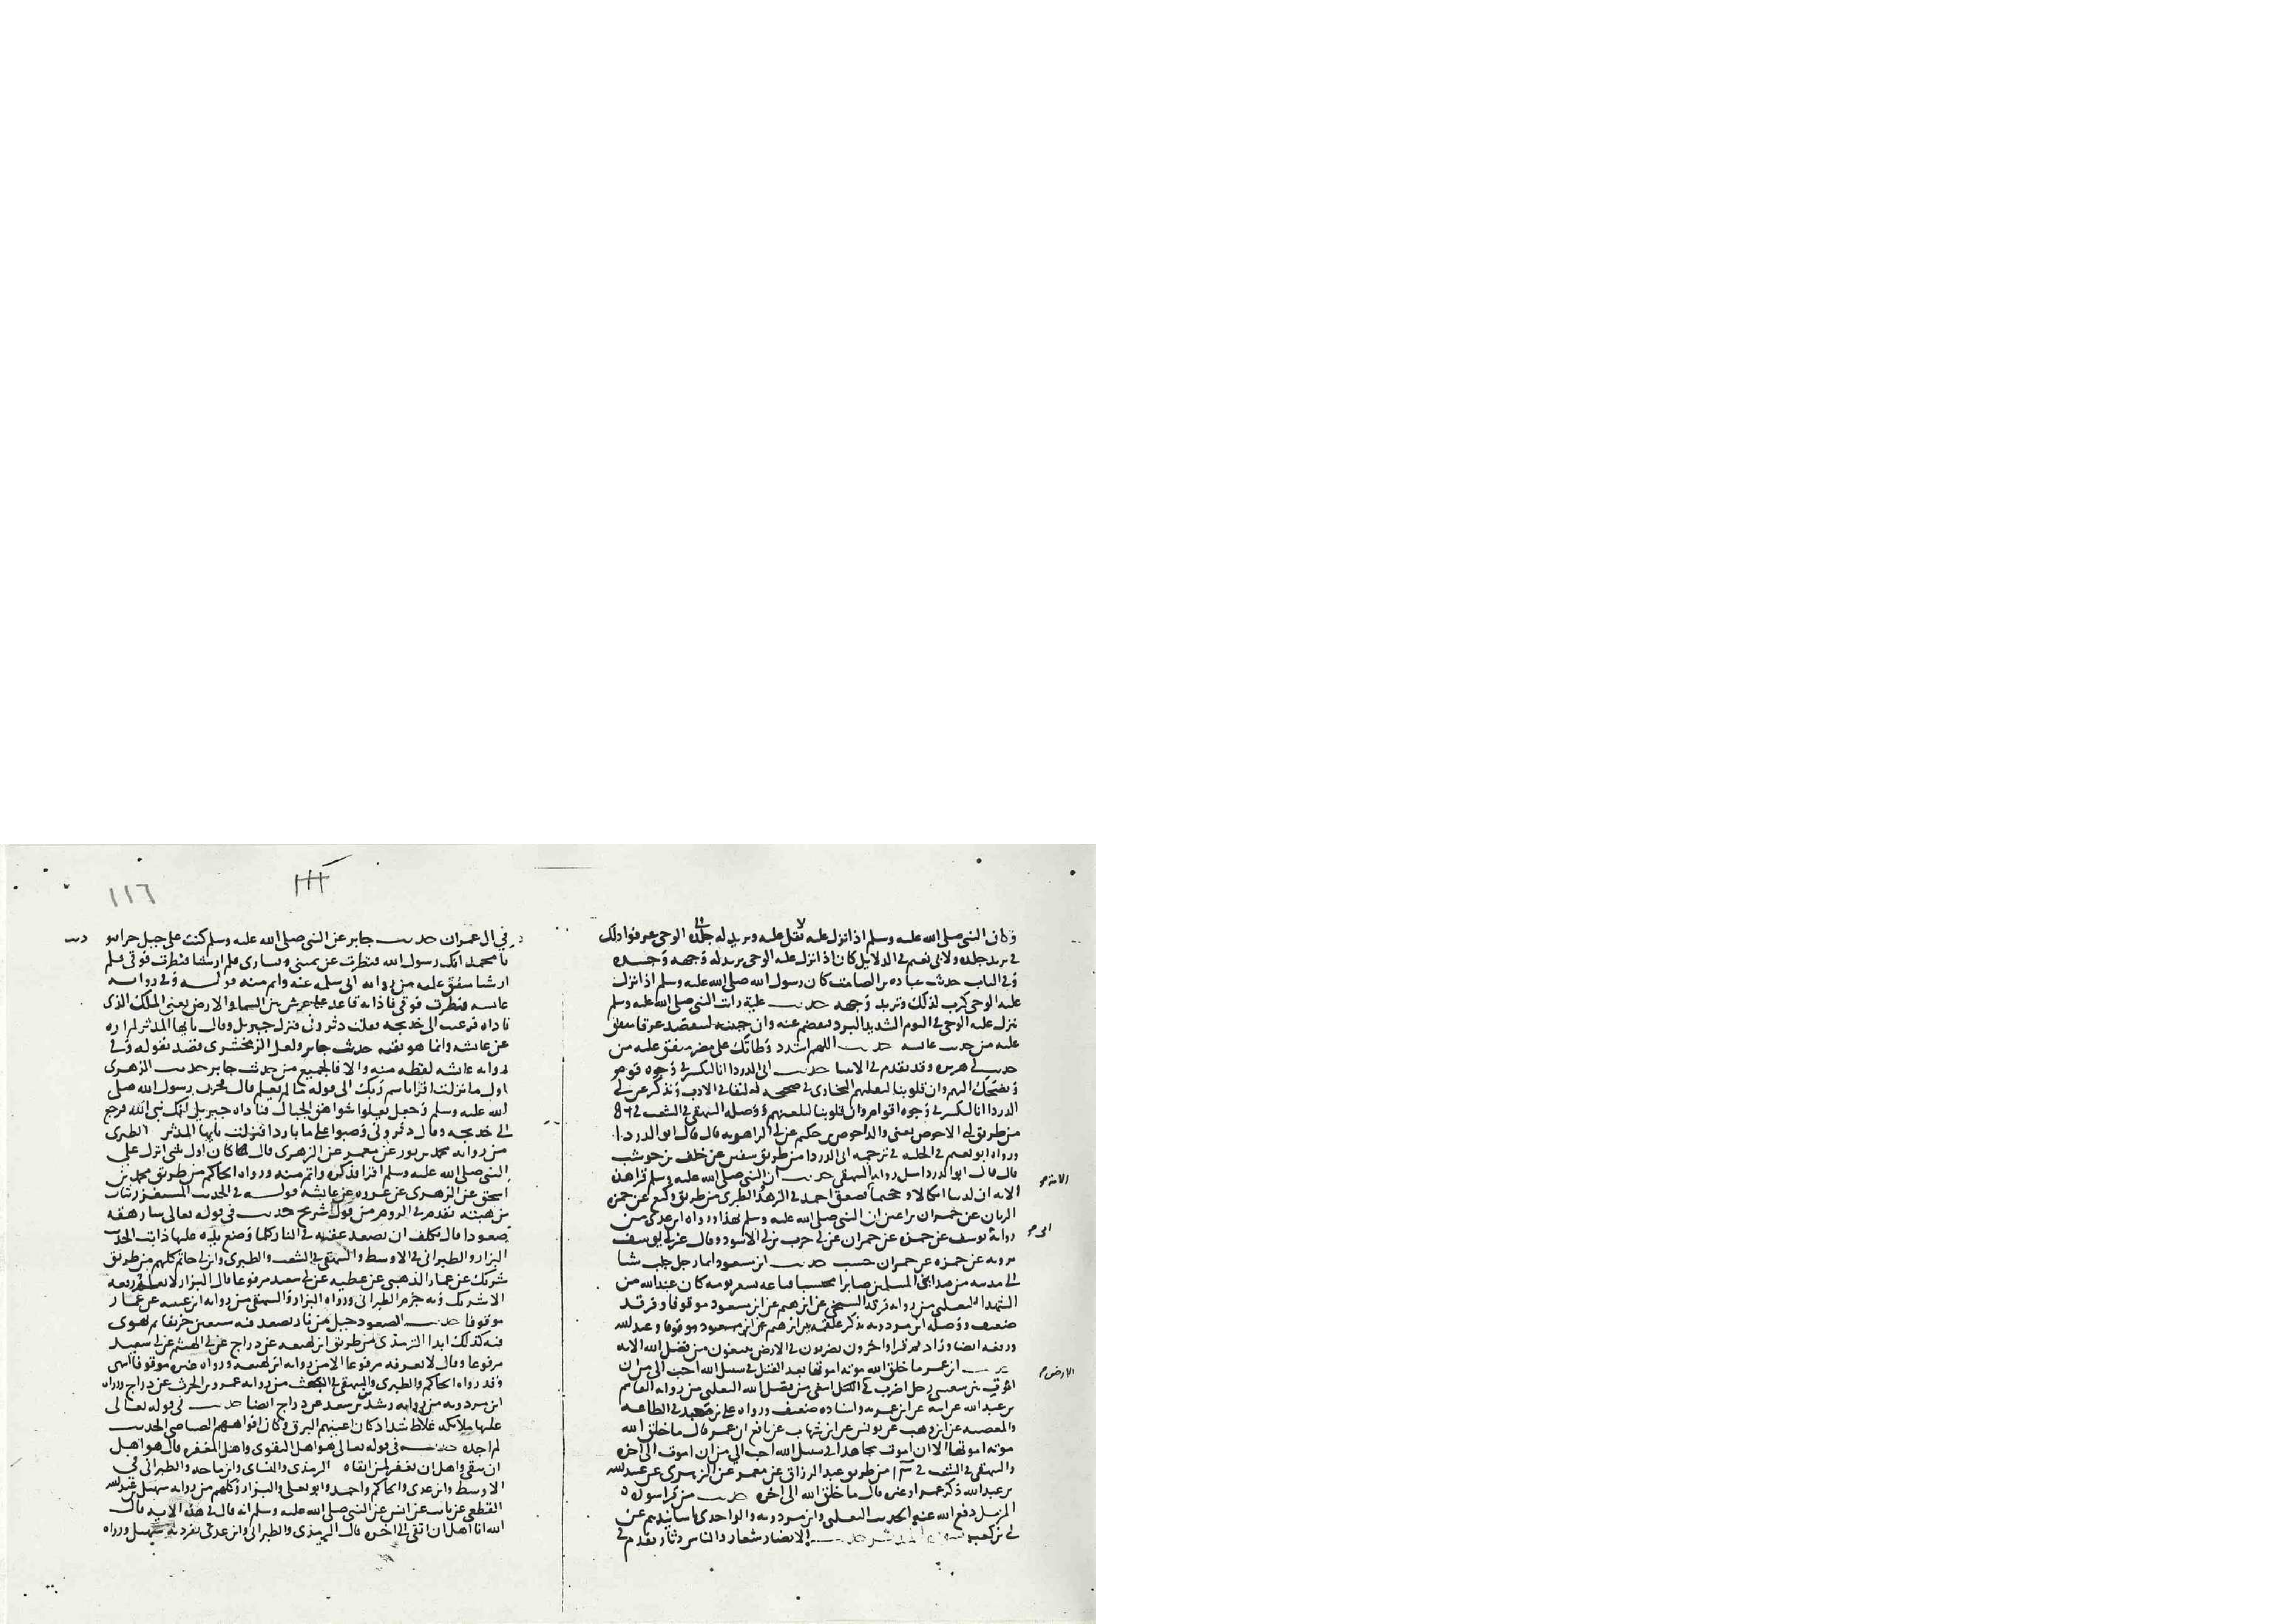 وكان النبى صلى الله عليه وسلم اذا نزل عليه ثقل عليه وتربد له جلده الوحى عرفوا ذلك
فى تربد جلده ولابى نعيم فى الدلايل كان اذا نزل عليه الوحى تربد له وجهه وجسده
وفى الباب حديث عباده بن الصامت كان رسول الله صلى الله عليه وسلم اذا نزل
عليه الوحى كرب لذلك وتربد وجهه حديث عايشة رايت النبى صلى الله عليه وسلم
ينزل عليه الوحى فى اليوم الشديد البرد فيفصم عنه وان جبينه ليتفصد عرقا متفق
عليه من حديث عايشه حديث اللهم اشدد وطاتك على مضر متفق عليه من
حديث ابى هريره وقد تقدم فى حديث ابى الدردا انا لنكشر فى وجوه قوم
ونضحك اليهم وان قلوبنا لتقليهم البخارى فى صحيحه تعليقا فى الادب ويذكر عن ابى
الدردا انا لنكشر فى وجوه اقوام وان قلوبنا لتلعنهم ووصله البيهقى فى الشعب فى
من طريق ابى الاحوص يعنى والد احوص بن حكيم عن ابى الزاهريه قال قال ابو الدردا
ورواه ابو نعيم فى الحليه فى ترجمه ابى الدردا من طريق سفين عن خلف بن حوشب
قال قال ابو الدردا مثل روايه البيهقى حديث ان النبى صلى الله عليه وسلم قرا هذه
الايه ان لدينا انكالا وجحيما فصعق احمد فى الزهد الطبرى من طريق وكيع عن حمزه
الزيات عن حمران بن اعين ان النبى صلى الله عليه وسلم بهذا ورواه ابن عدى من
رواية يوسف عن حمزه عن حمران عن ابى حرب بن ابى الاسود وقال غير ابى يوسف
يرويه عن حمزه عن حمران حسب حديث ابن مسعود ايما رجل جلب شيا
الى مدينه من مداين المسلمين صابرا محتسبا فباعه بسعر يومه كان عند الله من
الشهدا الثعلبى من روايه فرقد السبخى عن ابرهيم عن ابن مسعود موقوفا وفرقد
ضعيف ووصله ابن مردويه بذكر علقمه بين ابرهيم وابن مسعود
ورفعه ايضا وزاد ثم قرا واخرون يضربون فى الارض يبتغون من فضل الله الايه
حديث ابن عمر ما خلق الله موته اموتها بعد القتل فى سبيل الله احب الى من ان
اموت بين شعبتى رحل اضرب فى الارض ابتغى من فضل الله الثعلبى من روايه القاسم
بن عبد الله عن ابيه عن ابن عمر به واسناده ضعيف ورواه على بن معبد فى الطاعه
والمعصيه عن ابن وهب عن يونس عن ابن شهاب عن نافع ان عمر قال ما خلق الله
موته اموتها الا ان اموت مجاهدا فى سبيل الله احب الى من ان اموت الى اخره
والبيهقى فى الشعب فى من طريق عبد الرزاق عن معمر عن الزهرى عن عبيد الله
بن عبد الله ذكر عمر او غيره قال ما خلق الله الى اخره حديث من قرا سورة
المزمل دفع الله عنه الحديث الثعلبى وابن مردويه والواحدى باسانيدهم عن
ابى بن كعب سورة المدثر حديث الانصار شعار والناس دثار تقدم فى
الايه
الارض
١١٦
فى ال عمران حديث جابر عن النبى صلى الله عليه وسلم كنت على جبل حرا فنوديت
يا محمد انك رسول الله فنظرت عن يمينى ويسارى فلم ار شيا فنظرت فوقى فلم
ار شيا متفق عليه من روايه ابى سلمه عنه واتم منه قوله وفى روايه
عايشه فنظرت فوقى فاذا به قاعد على عرش بين السما والارض يعنى الملك الذى
ناداه فرعبت الى خديجه فقلت دثرونى فنزل جبريل وقال يايها المدثر لم اره
عن عايشه وانما هو بقيه حديث جابر ولعل الزمخشرى قصد بقوله وفى
روايه عايشه لفظه منه والا فالجميع من حديث جابر حديث الزهرى
اول ما نزلت اقرا باسم ربك الى قوله ما لم يعلم قال فحزن رسول الله صلى
الله عليه وسلم وجعل يعلوا شواهق الجبال فناداه جبريل انك نبى الله فرجع
الى خديجه وقال دثرونى وصبوا على ما باردا فنزلت يايها المدثر الطبرى
من روايه محمد بن ثور عن معمر عن الزهرى قال كان اول شى انزل على
النبى صلى الله عليه وسلم اقرا فذكره واتم منه ورواه الحاكم من طريق محمد بن
اسحق عن الزهرى عن عروه عن عايشه قوله فى الحديث المستغزر يثاب
من هبته تقدم فى الروم من قول شريح حديث فى قوله تعالى سارهقه
صعودا قال يكلف ان يصعد عقبه فى النار كلما وضع يده عليها ذابت الحديث
البزار والطبرانى فى الاوسط والبيهقى فى الشعب والطبرى وابن ابى حاتم كلهم من طريق
شريك عن عمار الذهبى عن عطيه عن ابى سعيد مرفوعا قال البزار لا نعلم رفعه
الا شريك وبه جزم الطبرانى ورواه البزار والبيهقى من روايه ابن عيينه عن عمار
موقوفا حديث الصعود جبل من نار يصعد فيه سبعين خريفا ثم يهوى
فيه كذلك ابدا الترمذى من طريق ابن لهيعه عن دراج عن ابى الهيثم عن ابى سعيد
مرفوعا وقال لا نعرفه مرفوعا الا من روايه ابن لهيعه ورواه غيره موقوفا انتهى
وقد رواه الحاكم والطبرى والبيهقى فى البعث من روايه عمرو بن الحرث عن دراج ورواه
ابن مردويه من روايه رشدين بن سعد عن دراج ايضا حديث فى قوله تعالى
عليها ملائكه غلاظ شداد كان اعينهم البرق وكان افواههم الصياصى الحديث
لم اجده حديث فى قوله تعالى هو اهل التقوى واهل المغفره قال هو اهل
ان يتقى واهل ان يغفر لمن اتقاه الترمذى والنساى وابن ماجه والطبرانى فى
الاوسط وابن عدى والحاكم واحمد وابو يعلى والبزار وكلهم من روايه سهيل بن عبد الله
القطعى عن ثابت عن انس عن النبى صلى الله عليه وسلم انه قال فى هذه الايه قال
الله انا اهل ان اتقى الى اخره قال الترمذى والطبرانى وابن عدى تفرد به سهيل ورواه